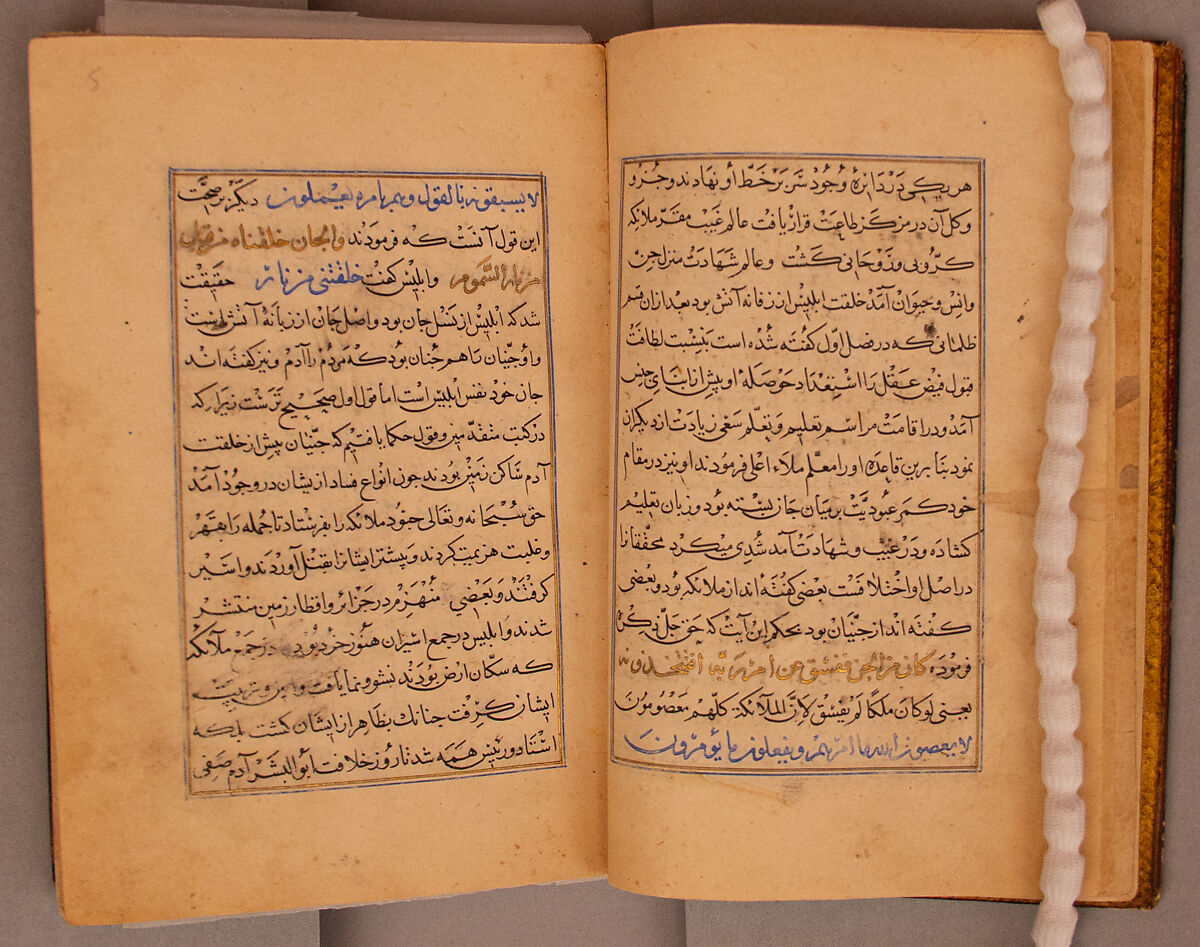 هر یکی در دایرهٔ وجود سر بر خط او نهادند و جزو
و کل آن در مرکز طاعت قرار یافت عالم غیب مقر ملائکه
کروبی و روحانی کشت و عالم شهادت منزل جن
و انس و حیوان آمد خلقت ابلیس از زفانه آتش بود بعد از ان قسم
ظلمانی که در فصل اول کفته شده است بنسبت لطافت
قبول فیض عقل را استعداد حوصله او بیش از ابنای جنس
آمد و در اقامت مراسم تعلیم و تعلم سعی زیادت از دیکران
نمود بنا برین قاعده او را معلم ملاء اعلی فرمودند او نیز در مقام
خود کمر عبودیت بر میان جان بسته بود و زبان تعلیم
کشاده و در غیب و شهادت آمد شدی میکرد محققانرا
در اصل او اختلافست بعضی کفته اند از ملائکه بود و بعضی
کفته اند از جنیان بود بحکم این آیت که حق جل ذکره
فرموده کان من الجن ففسق عن امر ربه أفتتخذونه
یعنی لو کان ملکا لم یفسق لان الملآئکة کلهم معصومون
لا یعصون الله ما امرهم و یفعلون ما یؤمرون
5
لا یسبقونه بالقول و هم بامره یعملون دیکر بر صحت
این قول آنست که فرمودند والجان خلقناه من قبل
من نار السموم و ابلیس کفت خلقتنی من نار حقیقت
شد که ابلیس از نسل جان بود و اصل جان از زبانه آتش است
و او جنیان را هم چنان بود که مردم را آدم و نیز کفته اند
جان خود نفس ابلیس است اما قول اول صحیح ترست زیرا که
در کتب متقدمین و قول حکما یافتیم که جنیان پیش از خلقت
آدم ساکن زمین بودند چون انواع فساد از یشان در وجود آمد
حق سبحانه و تعالی جنود ملائکه را بفرستاد تا جمله را بقهر
و غلبت هزیمت کردند و بیشتر ایشانرا بقتل آوردند و اسیر
کرفتند و بعضی منهزم در جزائر و اقطار زمین منتشر
شدند و ابلیس در جمع اسیران هنوز خرد بود در جمع ملآئکه
که سکان ارض بودند نشو و نما یافت و تربیت
ایشان کرفت چنانك بظاهر از ایشان کشت بلکه
استاد و رئیس همه شد تا روز خلافت ابو البشر آدم صفی